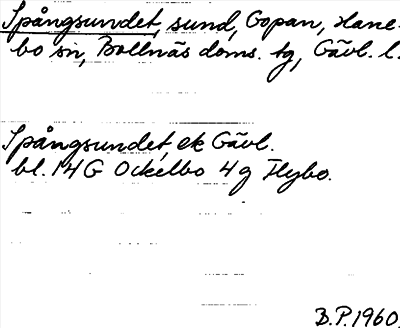 Spångsundet, sund, Gopan, Hane-
bo sn, Bollnäs doms. tg, Gävl. l.
Spångsundet, ek Gävl.
bl. 14G Ockelbo 4g Flybo.
B.P. 1960.